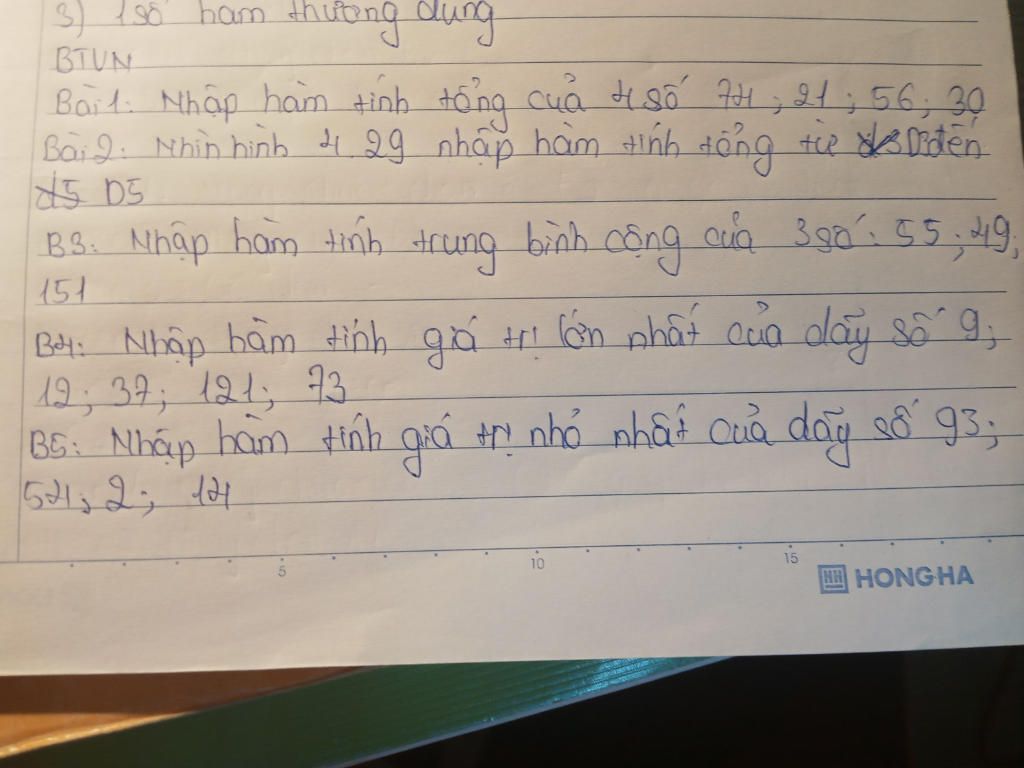 3) 1 số hàm thường dùng
BTVN
Bài 1: Nhập hàm tính tổng của 4 số 74; 21; 56; 30
Bài 2: Nhìn hình 4.29 nhập hàm tính tổng từ D3 đến
D5
B3: Nhập hàm tính trung bình cộng của 3 số: 55; 49;
151
B4: Nhập hàm tính giá trị lớn nhất của dãy số 9;
12; 37; 121; 73
B5: Nhập hàm tính giá trị nhỏ nhất của dãy số 93;
54; 2; 14
5 10 15
HH HONG HA